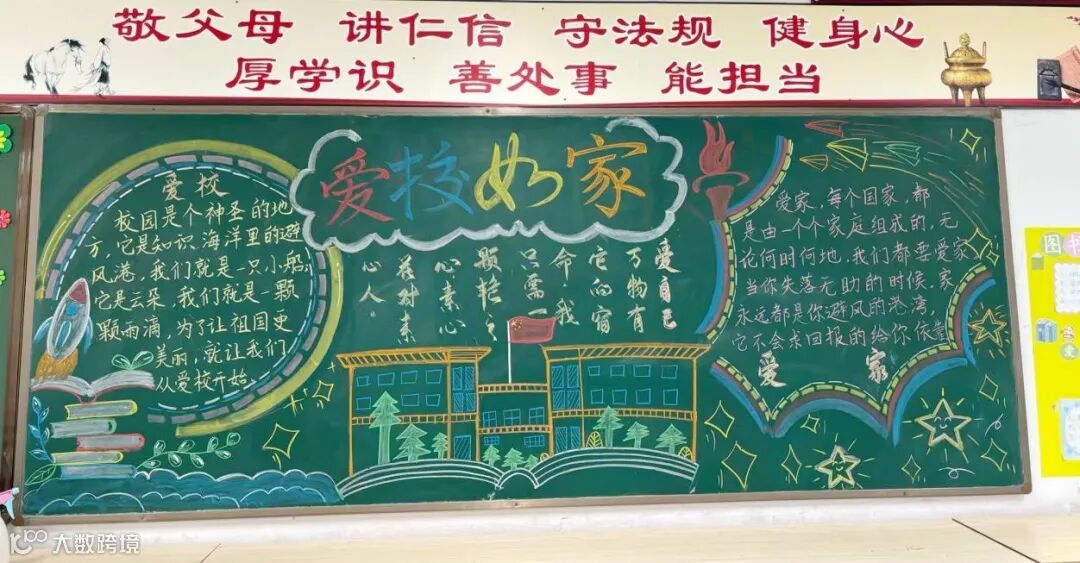 敬父母 讲仁信 守法规 健身心
厚学识 善处事 能担当
爱校如家
爱校
校园是个神圣的地
方,它是知识海洋里的避
风港,我们就是一只小船;
它是云朵,我们就是一颗
颗雨滴,为了让祖国史
美丽,就让我们
从爱校开始。
爱自己
万物有
它的宿
命,我
只需一
心素心
对素
心人。
爱家,每个国家,都
是由一个个家庭组成的,无
论何时何地,我们都要爱家
当你失落无助的时候,家
永远都是你避风的港湾,
它不会求回报的给你依靠
爱 家
图书
大数跨境